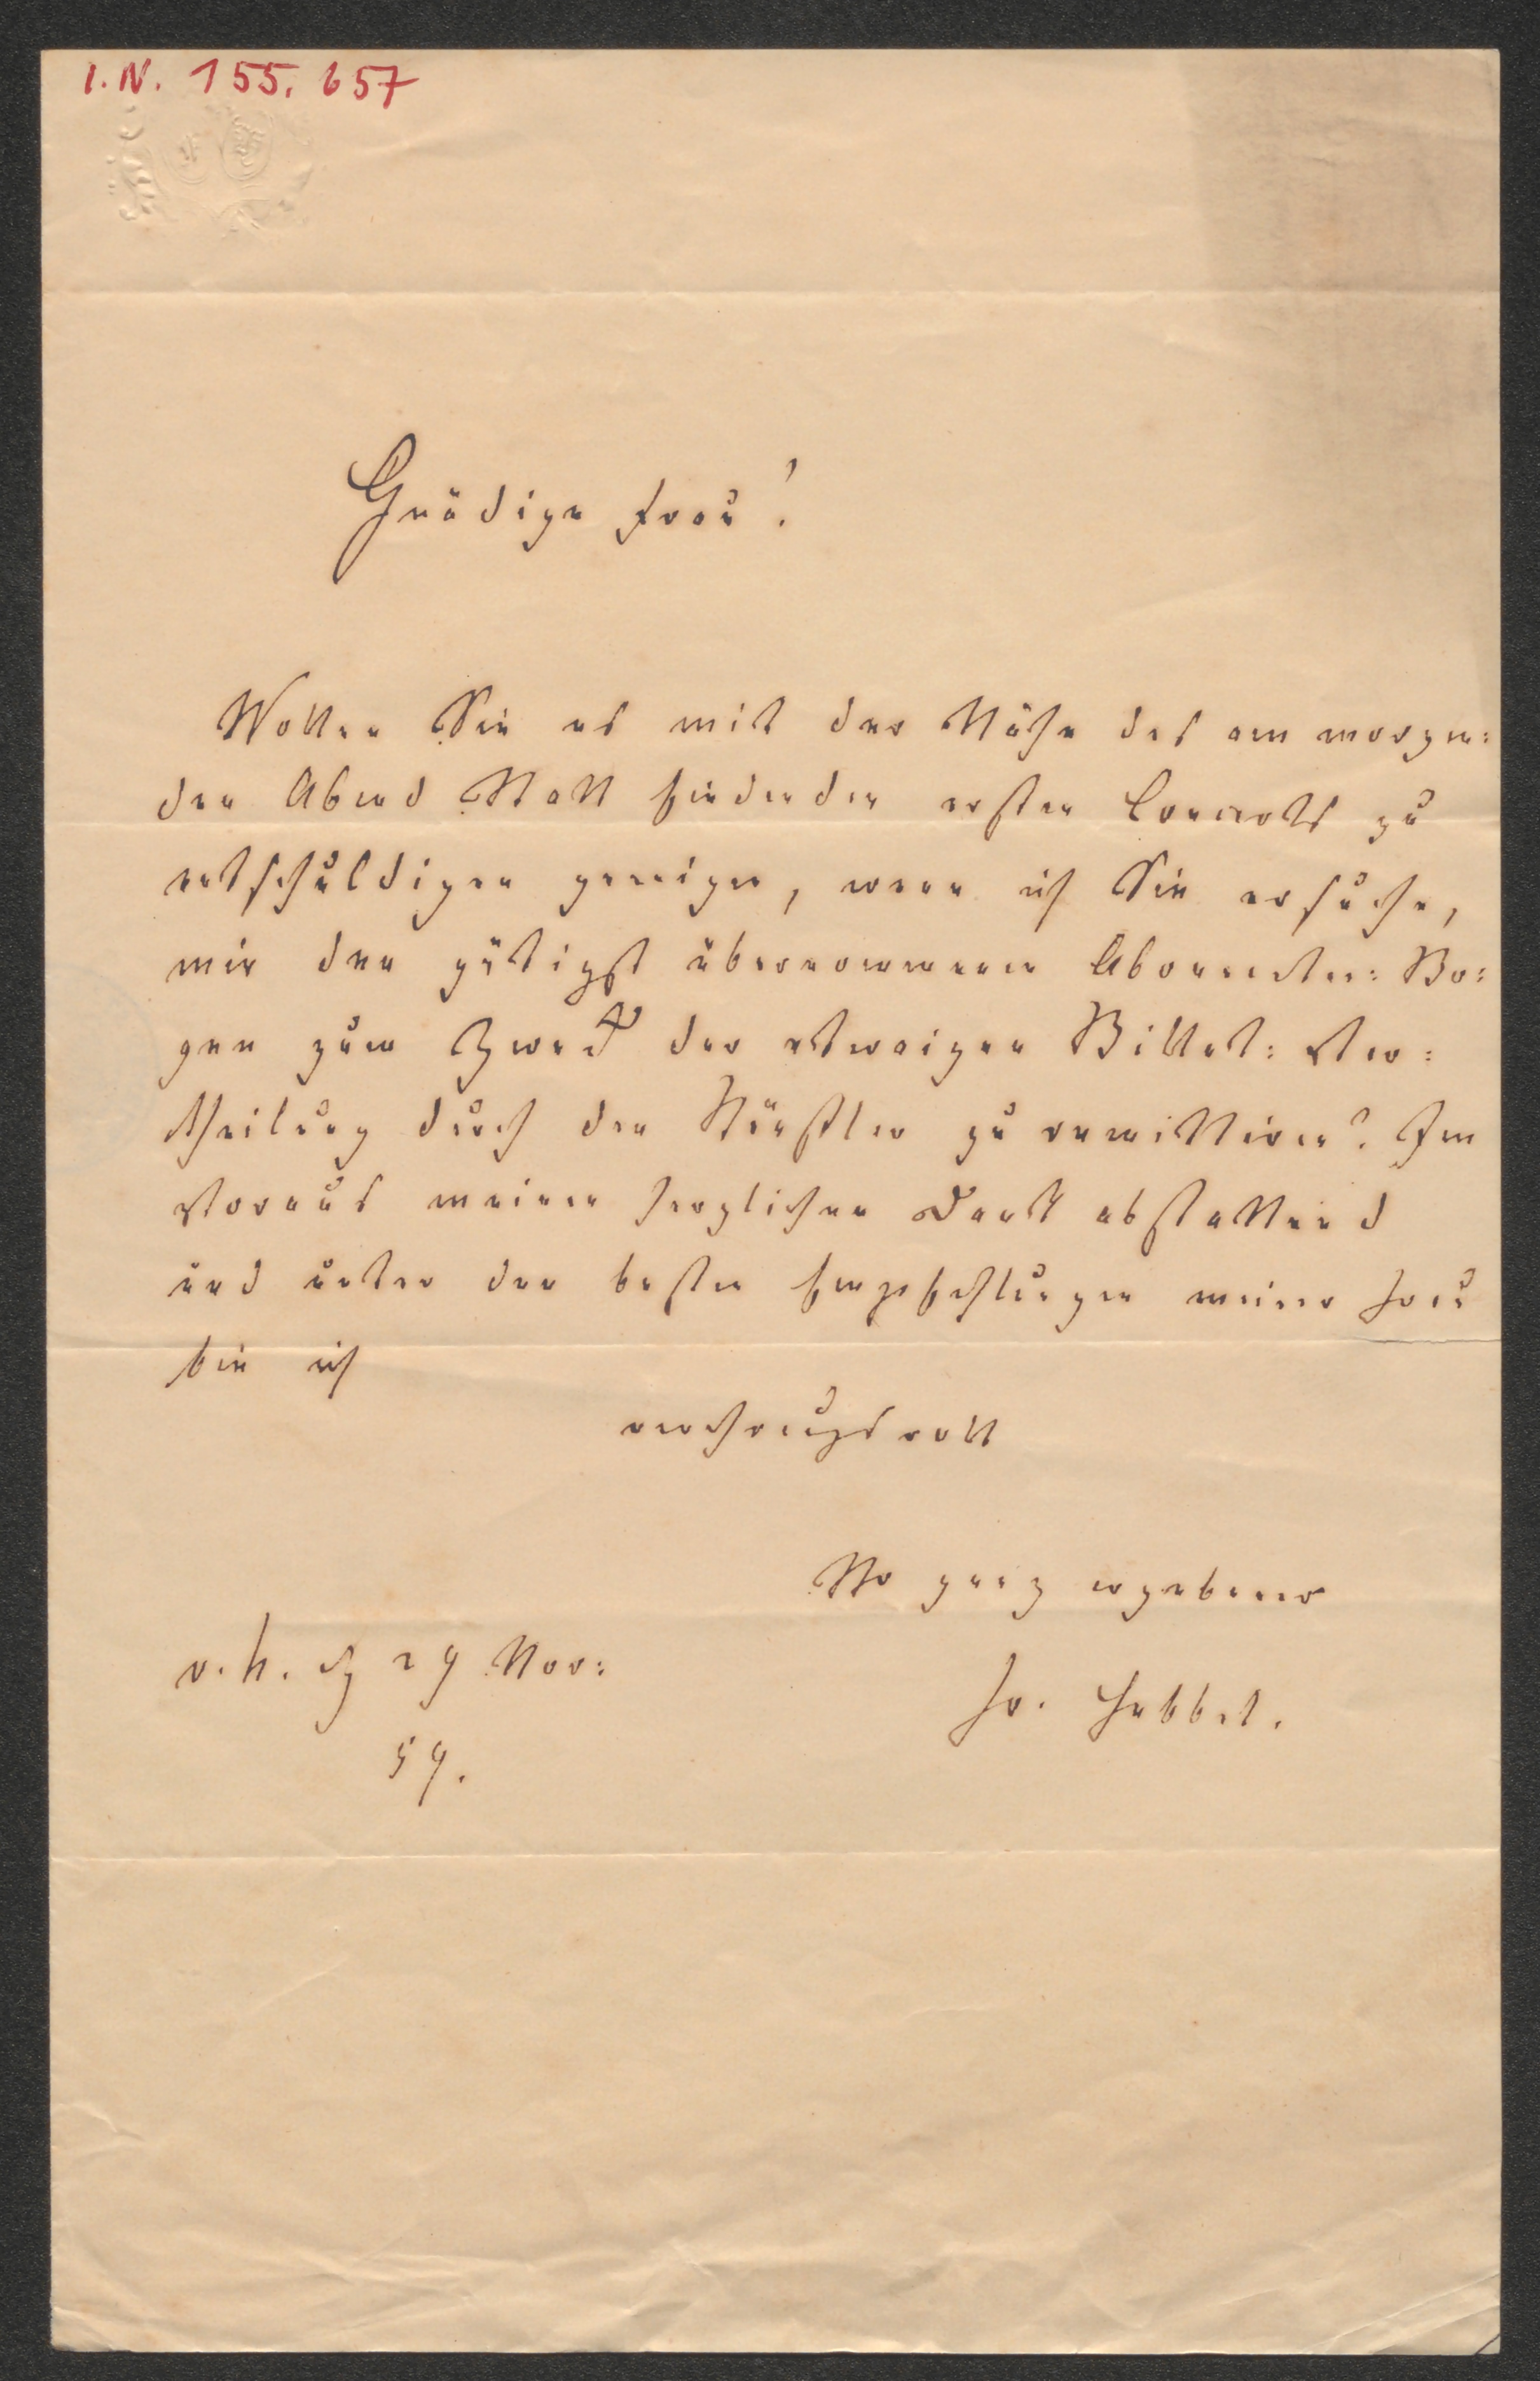 I. N. 155.657
Gnädige Frau!
Wollen Sie es mit der Nähe des am morgen:
den Abend Statt findenden ersten Concerts zu
entschuldigen geneigen, wenn ich Sie ersuche,
mir den gütigst übernommenen Abonnenten: Bo:
gen zum Zweck der etwaigen Billet: Ver:
theilung durch den Künstler zu remittiren? Im
Voraus meinen herzlichen Dank abstattend
und unter den besten Empfehlungen meiner Frau
bin ich
verehrungsvoll
Ihr ganz ergebener
v. H. d 29 Nov:
Fr. Hebbel.
59.